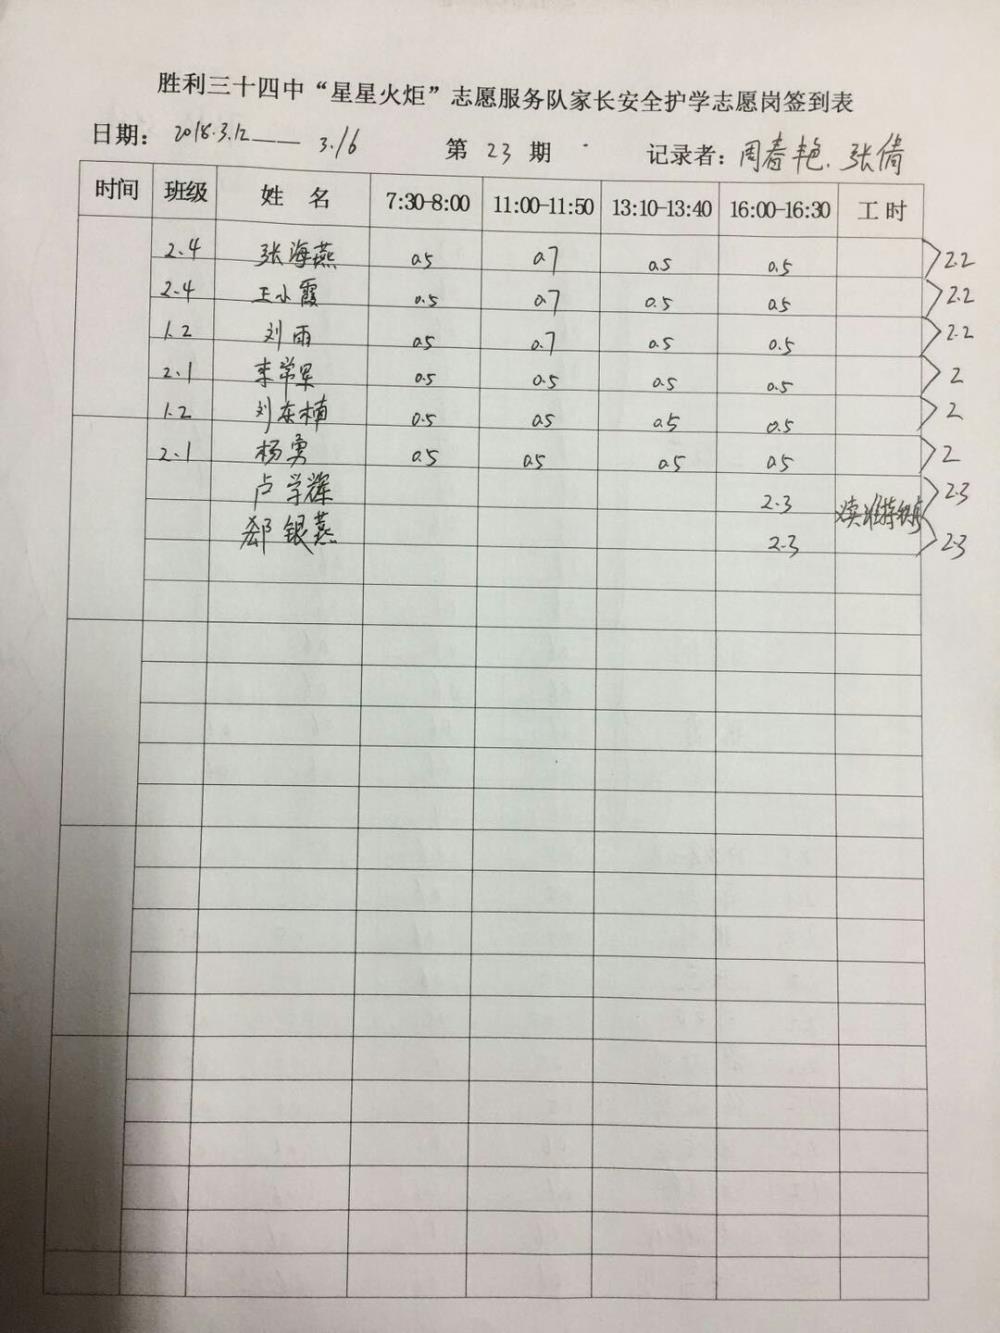 胜利三十四中“星星火炬”志愿服务队家长安全护学志愿岗签到表
日期: 2018.3.12—— 3.16 第 23 期 记录者: 周春艳、张倩
时间 班级 姓 名 7:30-8:00 11:00-11:50 13:10-13:40 16:00-16:30 工 时
2.4 张海燕 0.5 0.7 0.5 0.5 2.2
2.4 王小霞 0.5 0.7 0.5 0.5 2.2
1.2 刘雨 0.5 0.7 0.5 0.5 2.2
2.1 李常军 0.5 0.5 0.5 0.5 2
1.2 刘东楠 0.5 0.5 0.5 0.5 2
2.1 杨勇 0.5 0.5 0.5 0.5 2
卢学辉 2.3 2.3
郄银燕 2.3 2.3